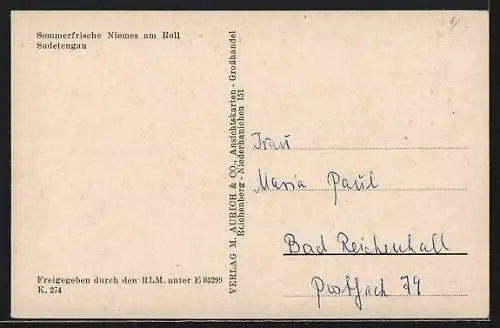 Sommerfrische Niemes am Roll
Sudetengau
34.
VERLAG M. AURICH & CO., Ansichtskarten - Großhandel
Reichenberg - Niederhanichen 151
Frau
Maria Paul
Bad Reichenhall
Postfach 74
Freigegeben durch den RLM. unter E 03299
K. 274